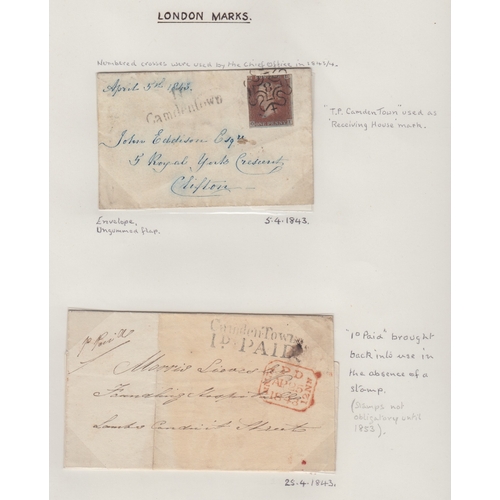 LONDON MARKS.
Numbered crosses were used by the Chief Office in 1843/4.
April 5th 1843.
Camden Town
John Eddison Esqr
5 Royal York Crescent
Clifton
"T.P. Camden Town" used as
'Receiving House' mark.
Envelope,
Ungummed flap.
5.4.1843.
Camden Town
1D PAID
Morris Lievesley
Foundling Hospital
Lambs Conduit Street
"1D Paid" brought
back into use in
the absence of a
stamp.
(Stamps not
obligatory until
1853).
25.4.1843.